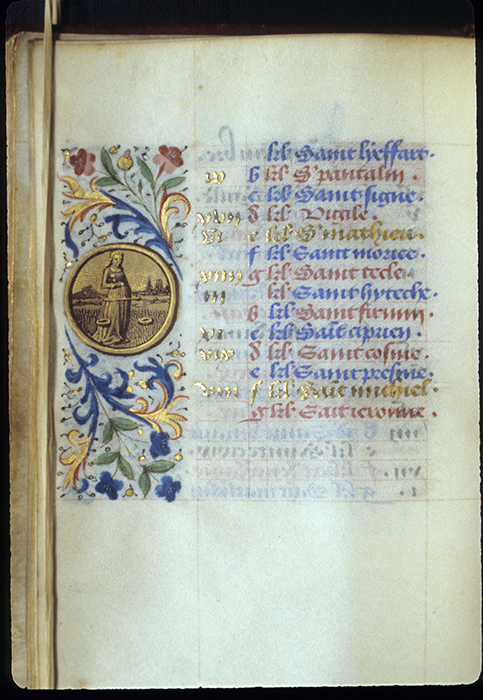 kl Saint lyeffart.
iv b kl S' pantalin.
c kl Saint signe.
xviii d kl Vigile.
vi e kl S' mathieu.
f kl Saint morice.
g kl Saint tecle
iii kl Saint hyteche.
b kl Saint firmin.
xi c kl Sait cipuen.
xix d kl Saint cosme.
e kl Saint presme.
viii f kl Sait michiel.
g kl Sait ieronme.